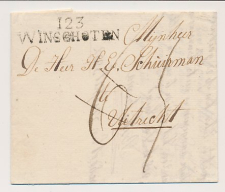 123
WINSCHOTEN
Mijnheer
De Heer H. G. Schuurman
te
Utrecht